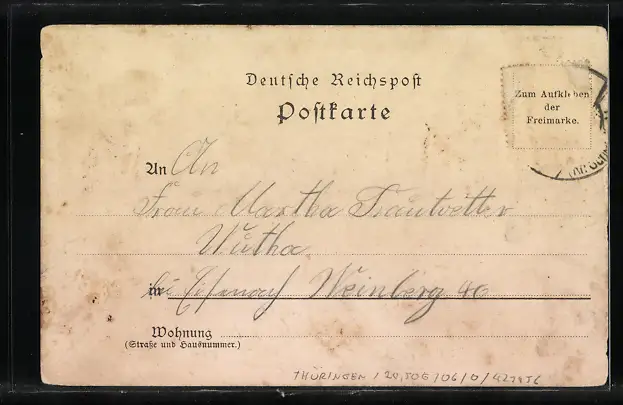 Deutsche Reichspost
Postkarte
Zum Aufkleben
der
Freimarke.
An An
Frau Martha Trautvetter
Wutha
in bei Eisenach Weinberg 40
Wohnung
(Straße und Hausnummer.)
THÜRINGEN / 20,TOG / 06 / 0 /